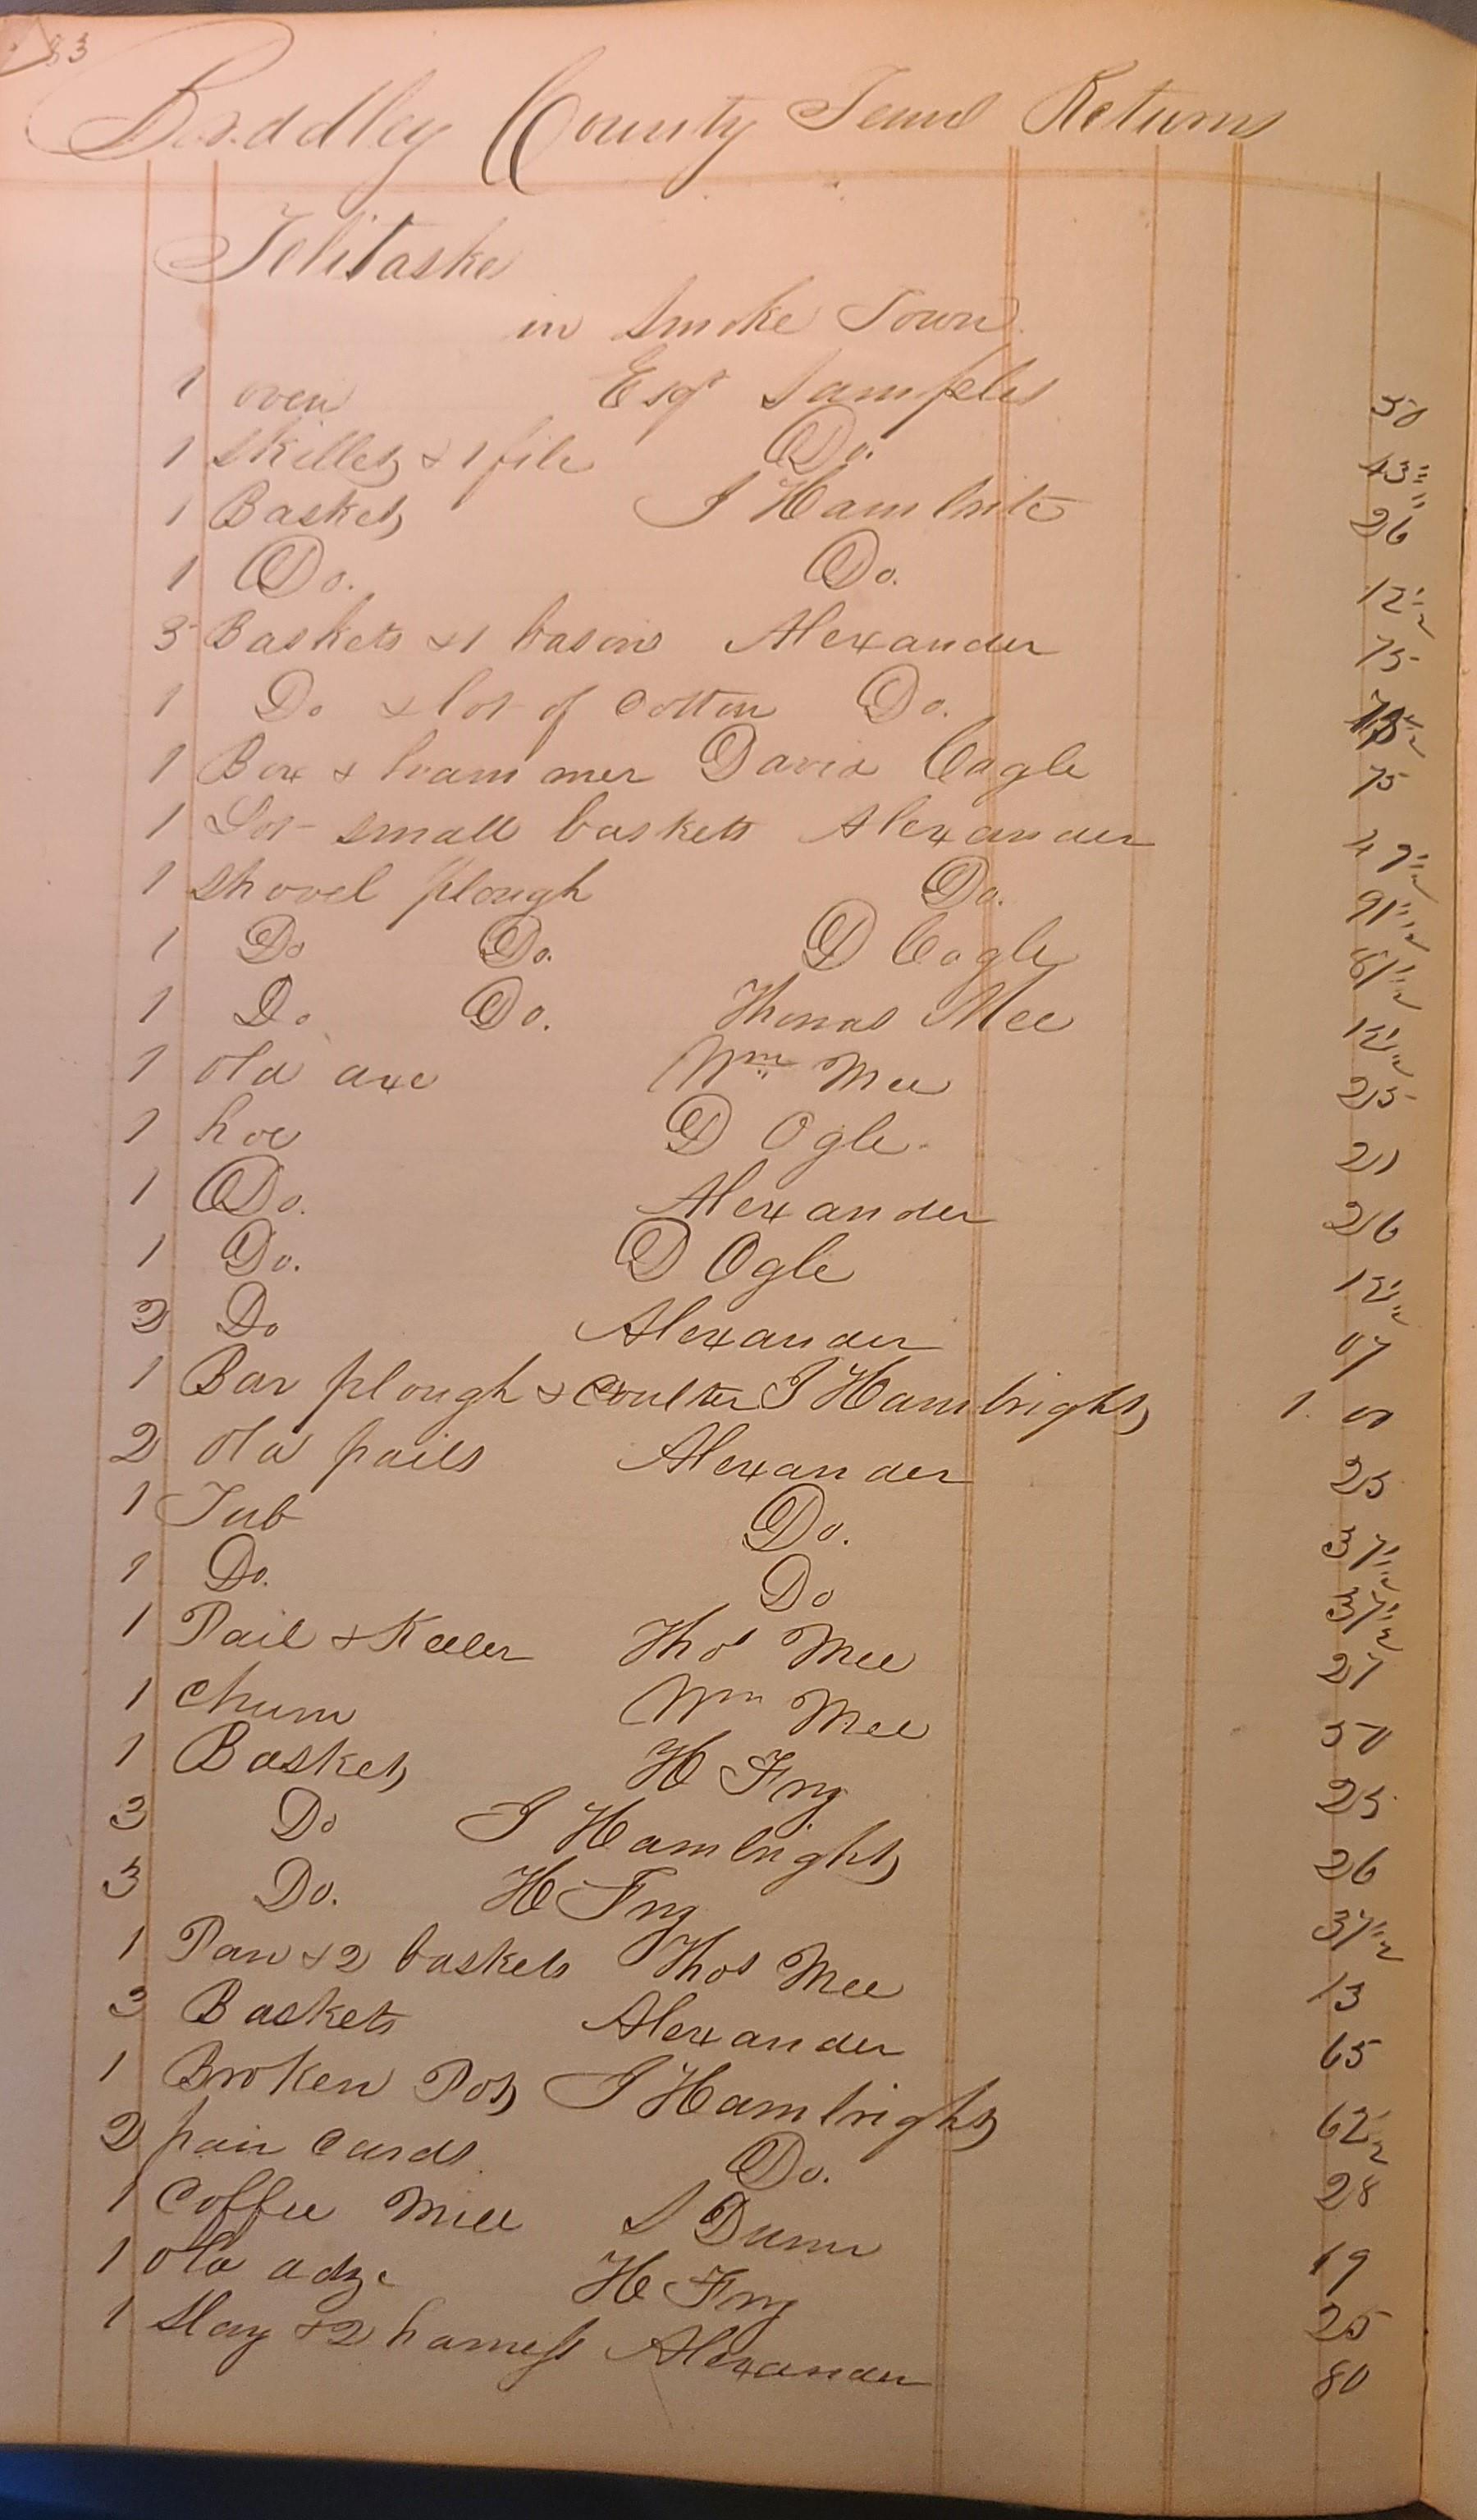 83
Bradley County Tenns Returns
Telitaske
in Smoke Town
1 oven Esqr Samples 50
1 Skillet & 1 file Do. 43 1/2
1 Basket J Hambrite 26
1 Do. Do. 12 1/2
3 Baskets & 1 bason Alexander 75
1 Do & lot of Cotton Do.
1 Box & hammer David Cagle 75
1 Lot small baskets Alexander 47 1/2
1 Shovel plough Do. 91 1/2
1 Do Do. D Cagle 61 1/2
1 Do Do. Thomas Mee 12 1/2
1 old axe Wm Mee 25
1 hoe D Ogle 21
1 Do. Alexander 26
1 Do. D Ogle 12 1/2
2 Do Alexander 07
1 Bar plough & Coulter J Hambright 1. 00
2 old pails Alexander 25
1 Tub Do. 37 1/2
1 Do. Do 37 1/2
1 Pail & Keeler Thos Mee 27
1 Churn Wm Mee 50
1 Basket H Fry 25
3 Do J Hambright 26
3 Do. H Fry 37 1/2
1 Pan & 2 baskets Thos Mee 13
3 Baskets Alexander 65
1 Broken Pot J Hambright 62 1/2
2 pair Cards Do. 28
1 Coffee Mill S Dunn 19
1 old adze H Fry 25
1 Slay & 2 harness Alexander 80